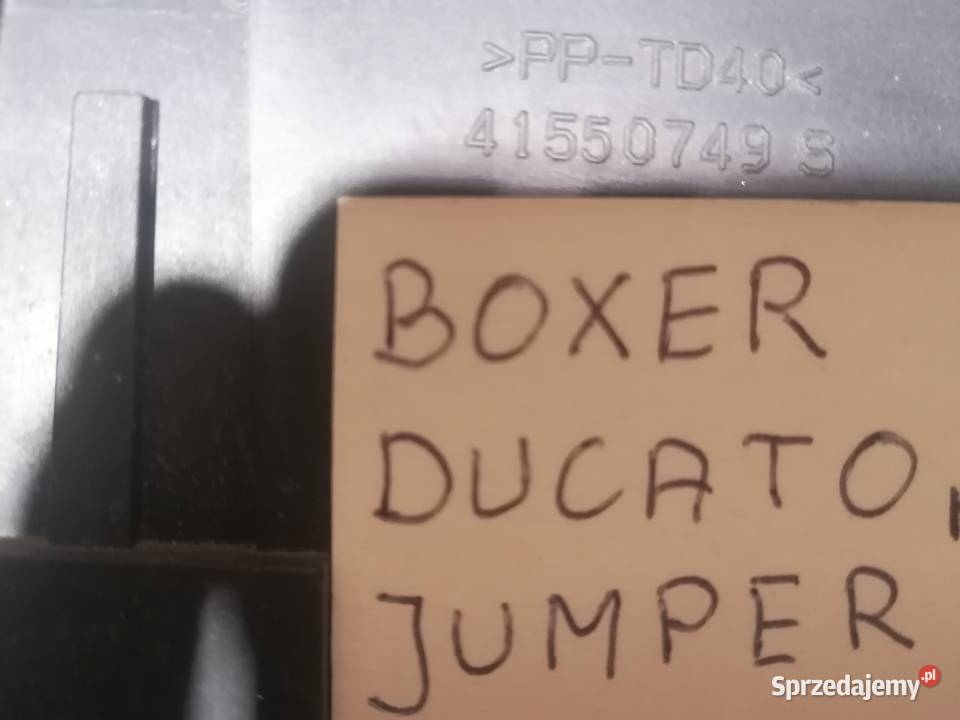 >PP-TD40<
41550749 S
BOXER
DUCATO,
JUMPER
Sprzedajemy.pl